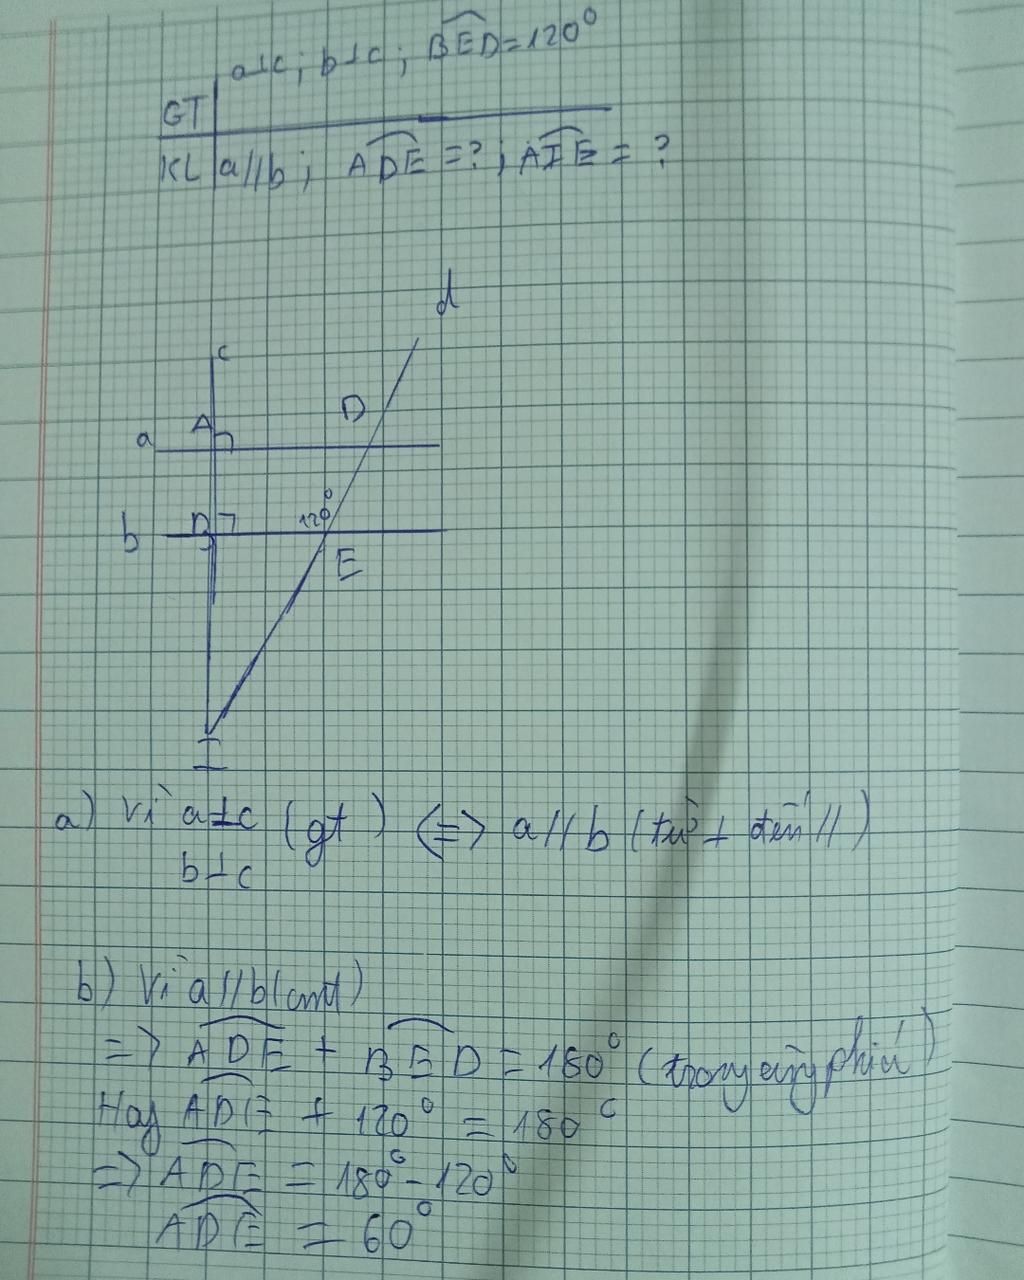 GT a⊥c ; b⊥c ; BED = 120°
KL a//b ; ADE = ? ; AIE = ?
d
c
A D
a
120°
b B
E
I
a) Vì a⊥c (gt) <=> a//b (từ ⊥ đến //)
b⊥c
b) Vì a//b (cmt)
=> ADE + BED = 180° (trong cùng phía)
Hay ADE + 120° = 180°
=> ADE = 180° - 120°
ADE = 60°